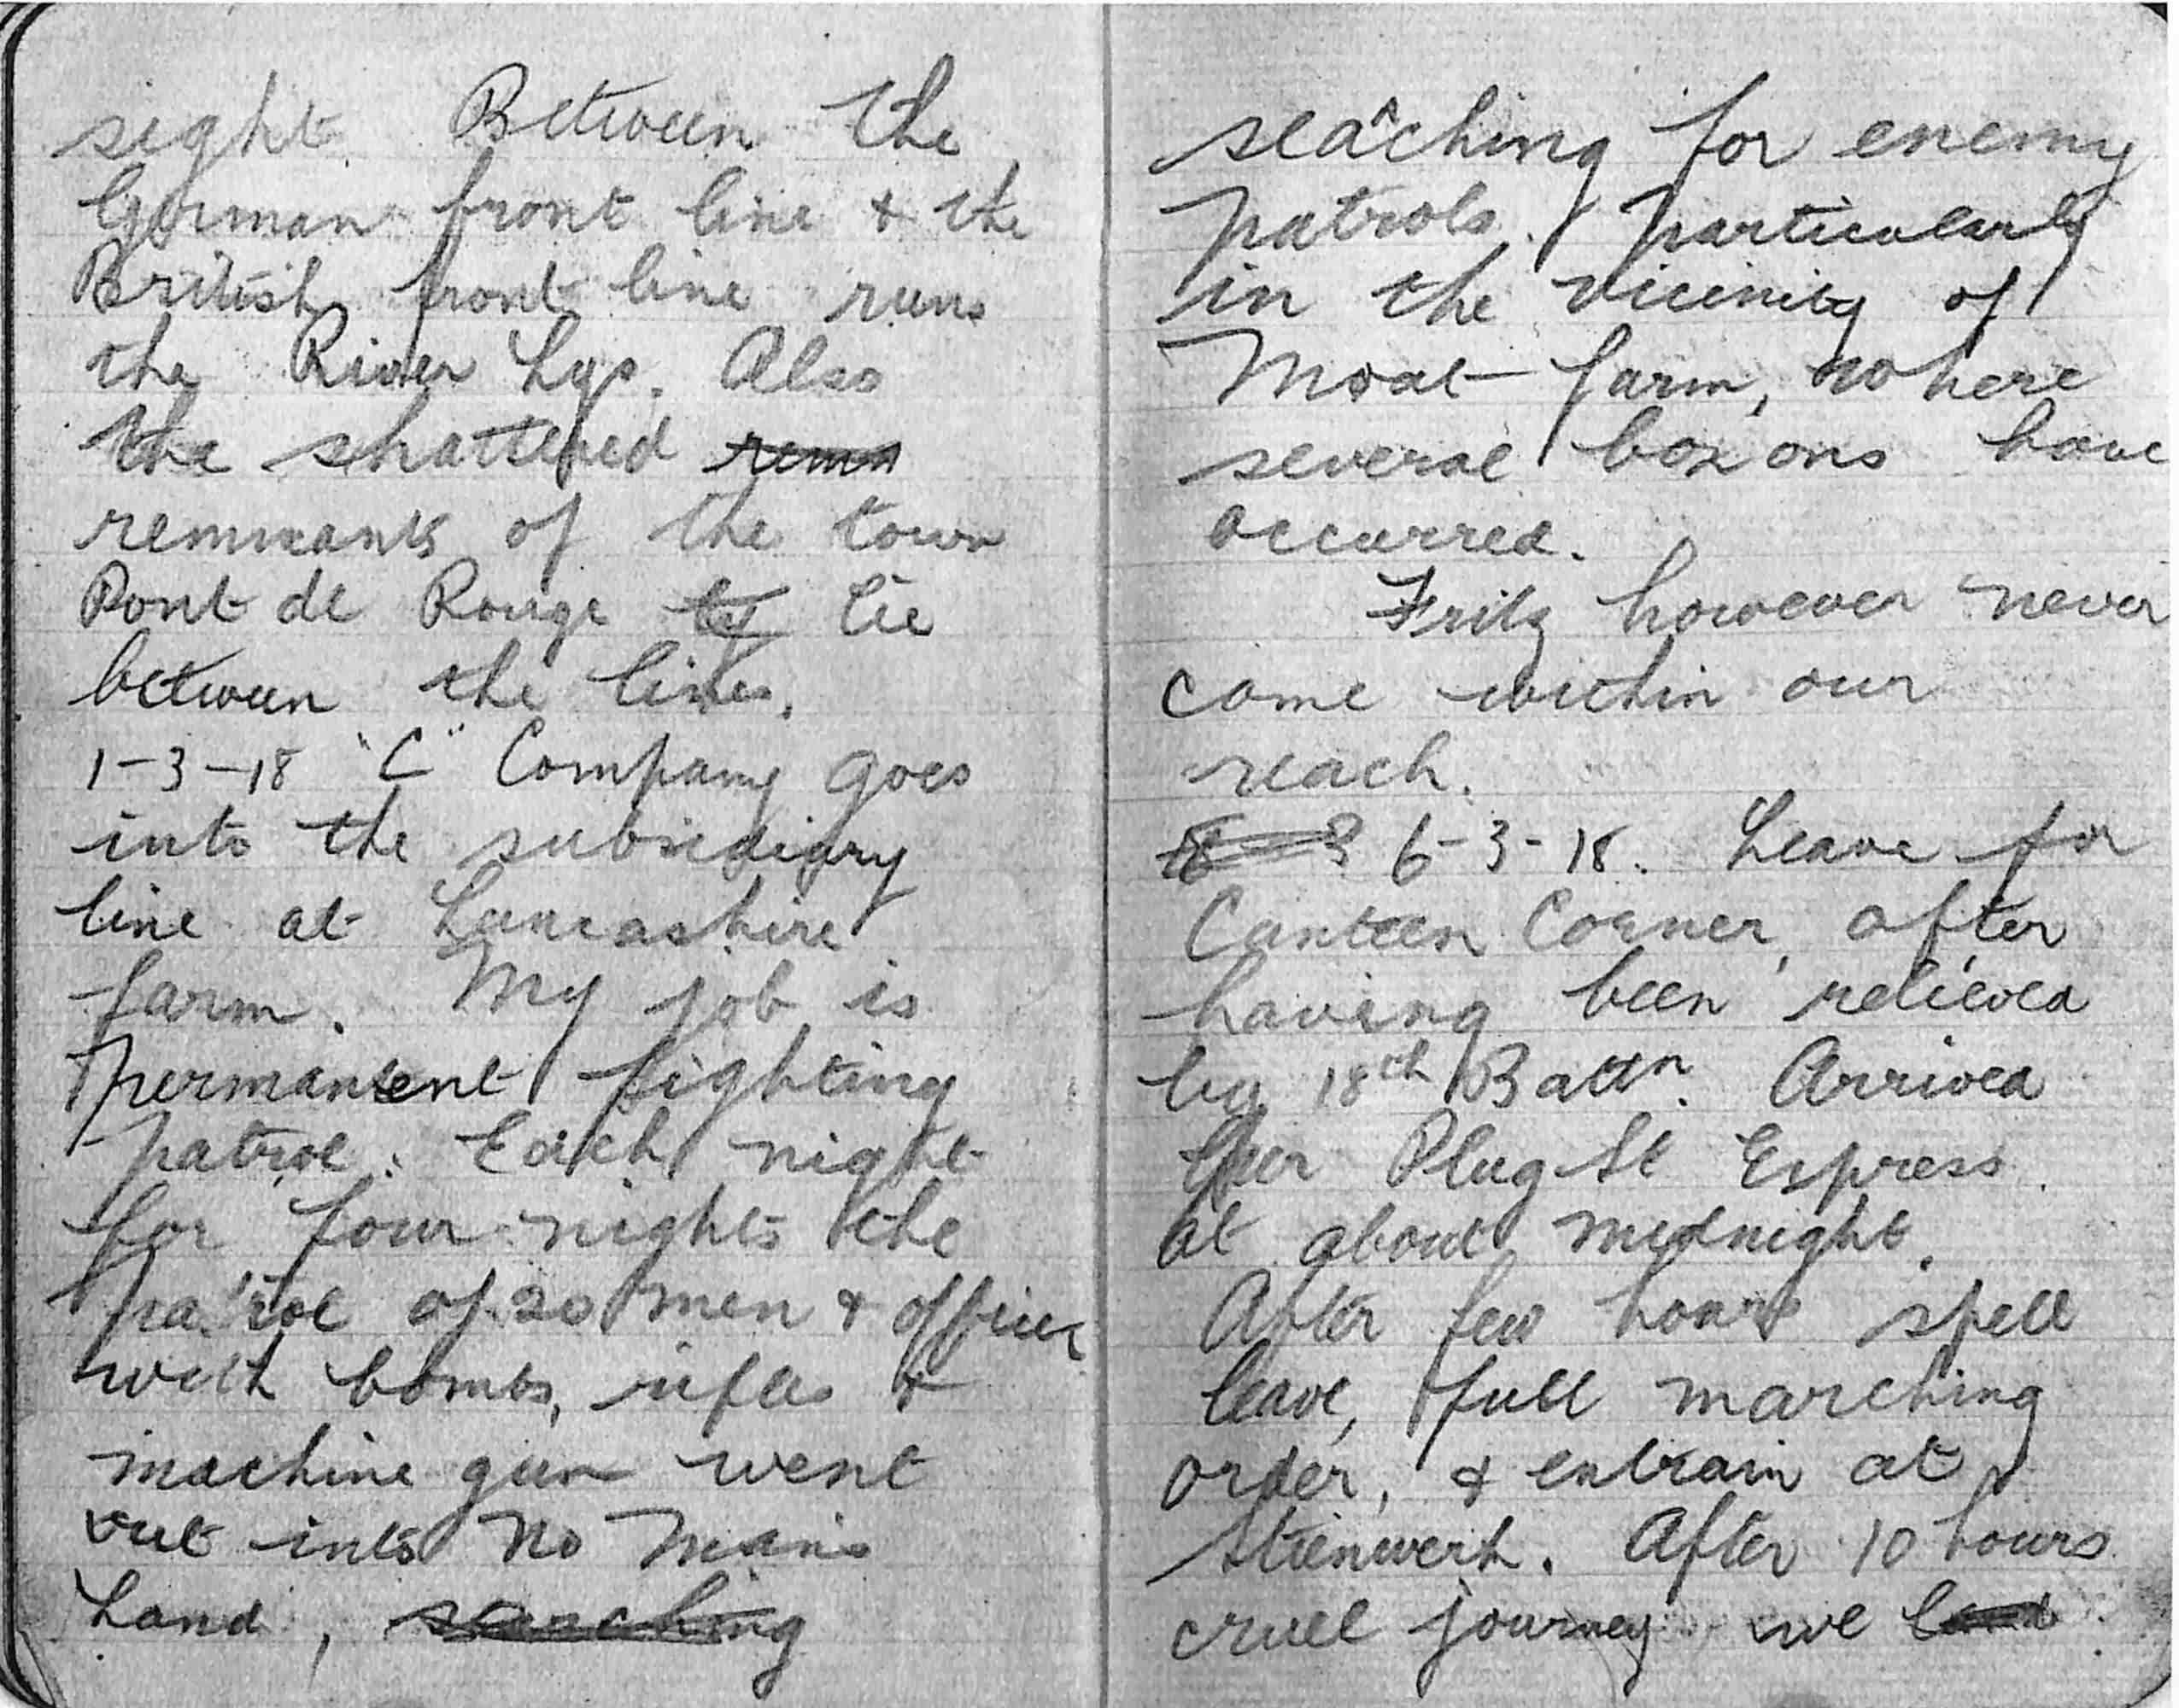 sight. Between the
German front line & the
British front line runs
the River Lys. Also
the shattered rema
remnants of the town
Pont de Rouge ly lie
between the lines.
1-3-18 "C" Company goes
into the subsidiary
line at Lancashire
farm. My job is
permanent fighting
patrol. Each night
for four nights the
patrol of 20 men & officer
with bombs, rifles &
machine gun went
out into No Man's
Land, searching
seaching for enemy
patrols. particularly
in the vicinity of
Moat farm, where
several box ons have
occurred.
Fritz however never
came within our
reach.
6-3-18. Leave for
Canteen Corner, after
having been relieved
by 18th Battn. Arrived
per Plug St Express
at about midnight.
After few hours spell
leave, full marching
order, & entrain at
Stienwerk. After 10 hours
cruel journey we